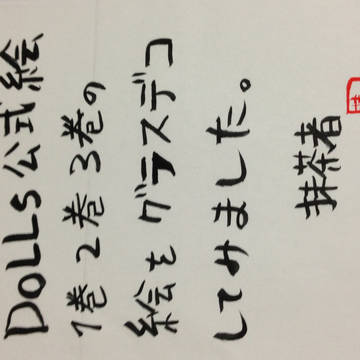 DOLLS公式絵
1巻2巻3巻の
絵をグラスデコ
してみました。
抹茶者